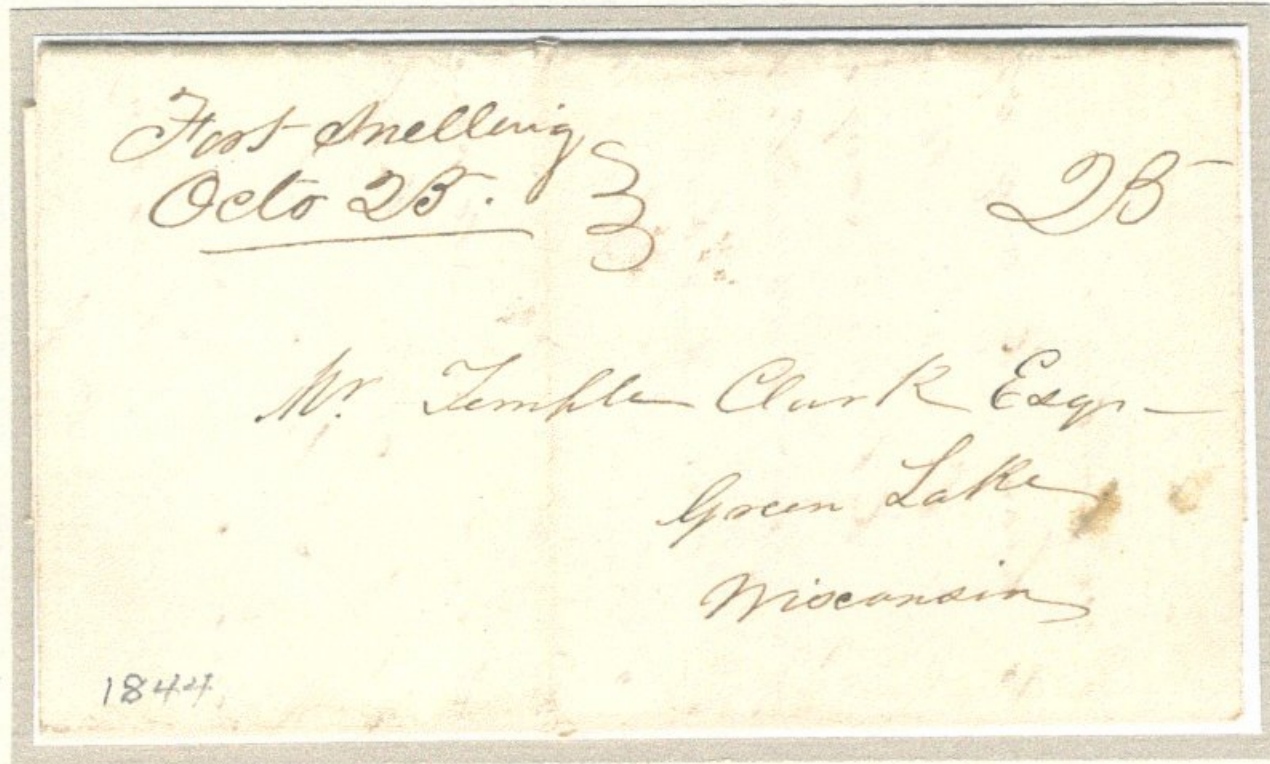 Fort Snelling
Octo 25.
25
Mr. Temple Clark Esqr
Green Lake
Wisconsin
1844